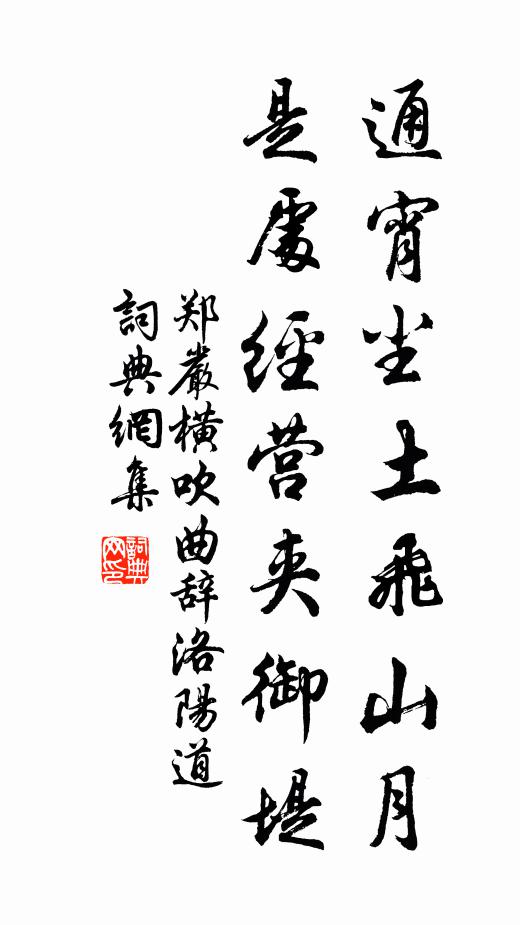 通宵尘土飛山月
是處經营夹御堤
郑嚴横吹曲辞洛陽道
詞典網集
詞典網印